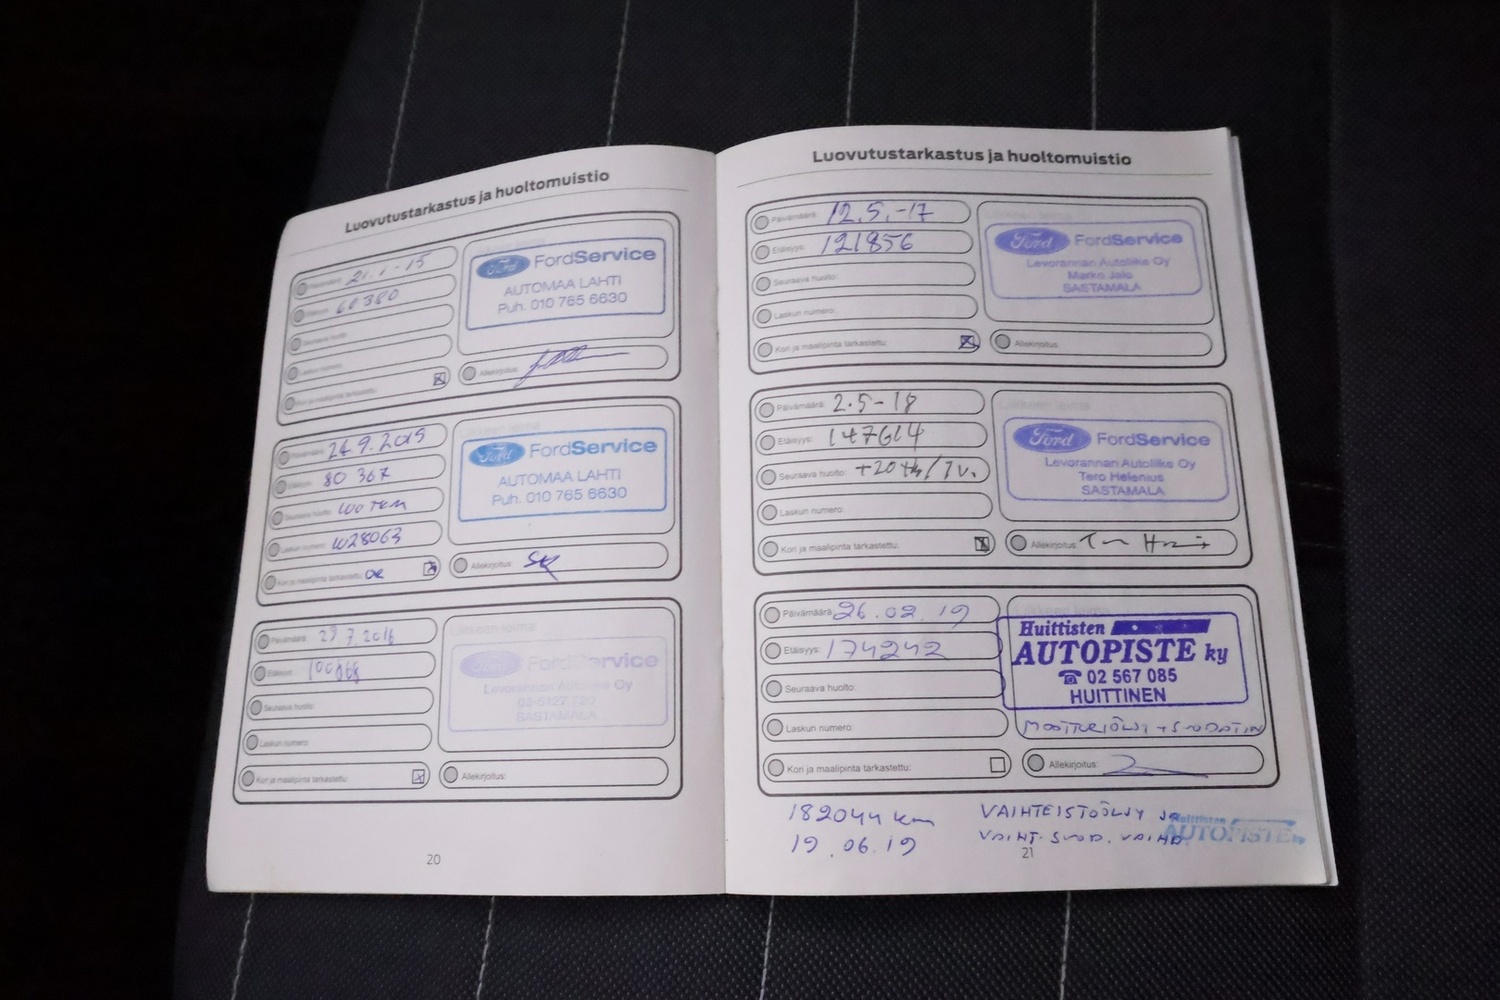 Luovutustarkastus ja huoltomuistio
Päivämäärä: 21.1-15
Etäisyys: 60380
Seuraava huolto:
Laskun numero:
Kori ja maalipinta tarkastettu:
Ford FordService
AUTOMAA LAHTI
Puh. 010 765 6630
Allekirjoitus:
Päivämäärä: 24.9.2015
Etäisyys: 80 367
Seuraava huolto: 100 TKM
Laskun numero: W28063
Kori ja maalipinta tarkastettu: OK
Ford FordService
AUTOMAA LAHTI
Puh. 010 765 6630
Allekirjoitus:
Päivämäärä: 29.7.2016
Etäisyys:
Seuraava huolto:
Laskun numero:
Kori ja maalipinta tarkastettu:
Liikkeen leima
Ford FordService
Levorannan Autoliike Oy
SASTAMALA
Allekirjoitus:
20
Luovutustarkastus ja huoltomuistio
Päivämäärä: 12.5.-17
Etäisyys: 121856
Seuraava huolto:
Laskun numero:
Kori ja maalipinta tarkastettu:
Ford FordService
Levorannan Autoliike Oy
Marko Jalo
SASTAMALA
Allekirjoitus:
Päivämäärä: 2.5-18
Etäisyys: 147614
Seuraava huolto: +20 tkm/1v.
Laskun numero:
Kori ja maalipinta tarkastettu:
Ford FordService
Levorannan Autoliike Oy
Tero Helenius
SASTAMALA
Allekirjoitus:
Päivämäärä: 26.02.19
Etäisyys: 174242
Seuraava huolto:
Laskun numero:
Kori ja maalipinta tarkastettu:
Liikkeen leima
Huittisten
AUTOPISTE ky
☎ 02 567 085
HUITTINEN
MOOTTORIÖLJY + SUODATIN
Allekirjoitus:
182044 km
19.06.19
VAIHTEISTOÖLJY JA
VAIHT. SUOD. VAIHD.
Huittisten
AUTOPISTE ky
21